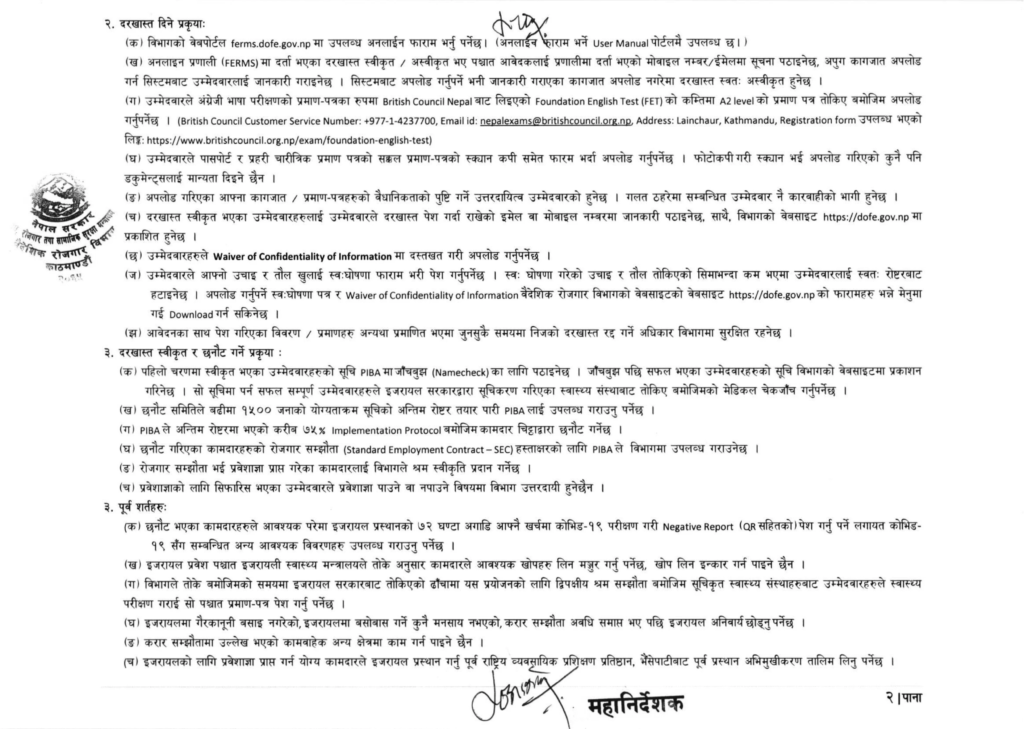 २. दरखास्त दिने प्रकृयाः
(क) विभागको वेबपोर्टल ferms.dofe.gov.np मा उपलब्ध अनलाईन फाराम भर्नु पर्नेछ। (अनलाईन फाराम भर्ने User Manual पोर्टलमै उपलब्ध छ।)
(ख) अनलाइन प्रणाली (FERMS) मा दर्ता भएका दरखास्त स्वीकृत / अस्वीकृत भए पश्चात आवेदकलाई प्रणालीमा दर्ता भएको मोबाइल नम्बर/ईमेलमा सूचना पठाइनेछ, अपुग कागजात अपलोड
गर्न सिस्टमबाट उम्मेदवारलाई जानकारी गराइनेछ । सिस्टमबाट अपलोड गर्नुपर्ने भनी जानकारी गराएका कागजात अपलोड नगरेमा दरखास्त स्वतः अस्वीकृत हुनेछ ।
(ग) उम्मेदवारले अंग्रेजी भाषा परीक्षणको प्रमाण-पत्रका रुपमा British Council Nepal बाट लिइएको Foundation English Test (FET) को कम्तिमा A2 level को प्रमाण पत्र तोकिए बमोजिम अपलोड
गर्नुपर्नेछ । (British Council Customer Service Number: +977-1-4237700, Email id: nepalexams@britishcouncil.org.np, Address: Lainchaur, Kathmandu, Registration form उपलब्ध भएको
लिङ्कः https://www.britishcouncil.org.np/exam/foundation-english-test)
(घ) उम्मेदवारले पासपोर्ट र प्रहरी चारीत्रिक प्रमाण पत्रको सक्कल प्रमाण-पत्रको स्क्यान कपी समेत फारम भर्दा अपलोड गर्नुपर्नेछ । फोटोकपी गरी स्क्यान भई अपलोड गरिएको कुनै पनि
डकुमेन्ट्सलाई मान्यता दिइने छैन ।
(ङ) अपलोड गरिएका आफ्ना कागजात / प्रमाण-पत्रहरुको बैधानिकताको पुष्टि गर्ने उत्तरदायित्व उम्मेदवारको हुनेछ । गलत ठहरेमा सम्बन्धित उम्मेदवार नै कारवाहीको भागी हुनेछ ।
(च) दरखास्त स्वीकृत भएका उम्मेदवारहरुलाई उम्मेदवारले दरखास्त पेश गर्दा राखेको इमेल वा मोबाइल नम्बरमा जानकारी पठाइनेछ, साथै, विभागको वेबसाइट https://dofe.gov.np मा
प्रकाशित हुनेछ ।
नेपाल सरकार
काठमाण्डौ
(छ) उम्मेदवारहरुले Waiver of Confidentiality of Information मा दस्तखत गरी अपलोड गर्नुपर्नेछ ।
(ज) उम्मेदवारले आफ्नो उचाइ र तौल खुलाई स्वःघोषणा फाराम भरी पेश गर्नुपर्नेछ । स्वः घोषणा गरेको उचाइ र तौल तोकिएको सिमाभन्दा कम भएमा उम्मेदवारलाई स्वतः रोष्टरबाट
हटाइनेछ । अपलोड गर्नुपर्ने स्वःघोषणा पत्र र Waiver of Confidentiality of Information वैदेशिक रोजगार विभागको वेबसाइटको वेबसाइट https://dofe.gov.np को फारामहरु भन्ने मेनुमा
गई Download गर्न सकिनेछ ।
(झ) आवेदनका साथ पेश गरिएका विवरण / प्रमाणहरु अन्यथा प्रमाणित भएमा जुनसुकै समयमा निजको दरखास्त रद्द गर्ने अधिकार विभागमा सुरक्षित रहनेछ ।
३. दरखास्त स्वीकृत र छनौट गर्ने प्रकृया :
(क) पहिलो चरणमा स्वीकृत भएका उम्मेदवारहरुको सूचि PIBA मा जाँचबुझ (Namecheck) का लागि पठाइनेछ । जाँचबुझ पछि सफल भएका उम्मेदवारहरुको सूचि विभागको वेबसाइटमा प्रकाशन
गरिनेछ । सो सूचिमा पर्न सफल सम्पूर्ण उम्मेदवारहरुले इजरायल सरकारद्वारा सूचिकरण गरिएका स्वास्थ्य संस्थाबाट तोकिए बमोजिमको मेडिकल चेकजाँच गर्नुपर्नेछ ।
(ख) छनौट समितिले बढीमा १५०० जनाको योग्यताक्रम सूचिको अन्तिम रोष्टर तयार पारी PIBA लाई उपलब्ध गराउनु पर्नेछ ।
(ग) PIBA ले अन्तिम रोष्टरमा भएको करीब ७५% Implementation Protocol बमोजिम कामदार चिट्ठाद्वारा छनौट गर्नेछ ।
(घ) छनौट गरिएका कामदारहरुको रोजगार सम्झौता (Standard Employment Contract – SEC) हस्ताक्षरको लागि PIBA ले विभागमा उपलब्ध गराउनेछ ।
(ङ) रोजगार सम्झौता भई प्रवेशाज्ञा प्राप्त गरेका कामदारलाई विभागले श्रम स्वीकृति प्रदान गर्नेछ ।
(च) प्रवेशाज्ञाको लागि सिफारिस भएका उम्मेदवारले प्रवेशाज्ञा पाउने वा नपाउने विषयमा विभाग उत्तरदायी हुनेछैन ।
३. पूर्व शर्तहरुः
(क) छनौट भएका कामदारहरुले आवश्यक परेमा इजरायल प्रस्थानको ७२ घण्टा अगाडि आफ्नै खर्चमा कोभिड-१९ परीक्षण गरी Negative Report (QR सहितको) पेश गर्नु पर्ने लगायत कोभिड-
१९ सँग सम्बन्धित अन्य आवश्यक विवरणहरु उपलब्ध गराउनु पर्नेछ ।
(ख) इजरायल प्रवेश पश्चात इजरायली स्वास्थ्य मन्त्रालयले तोके अनुसार कामदारले आवश्यक खोपहरु लिन मञ्जुर गर्नु पर्नेछ, खोप लिन इन्कार गर्न पाइने छैन ।
(ग) विभागले तोके बमोजिमको समयमा इजरायल सरकारबाट तोकिएको ढाँचामा यस प्रयोजनको लागि द्विपक्षीय श्रम सम्झौता बमोजिम सूचिकृत स्वास्थ्य संस्थाहरुबाट उम्मेदवारहरुले स्वास्थ्य
परीक्षण गराई सो पश्चात प्रमाण-पत्र पेश गर्नु पर्नेछ ।
(घ) इजरायलमा गैरकानूनी बसाइ नगरेको,इजरायलमा बसोबास गर्ने कुनै मनसाय नभएको,करार सम्झौता अवधि समाप्त भए पछि इजरायल अनिवार्य छोड्नुपर्नेछ ।
(ङ) करार सम्झौतामा उल्लेख भएको कामवाहेक अन्य क्षेत्रमा काम गर्न पाइने छैन ।
(च) इजरायलको लागि प्रवेशाज्ञा प्राप्त गर्न योग्य कामदारले इजरायल प्रस्थान गर्नु पूर्व राष्ट्रिय व्यवसायिक प्रशिक्षण प्रतिष्ठान, भैंसेपाटीबाट पूर्व प्रस्थान अभिमुखीकरण तालिम लिनु पर्नेछ ।
महानिर्देशक
२ | पाना